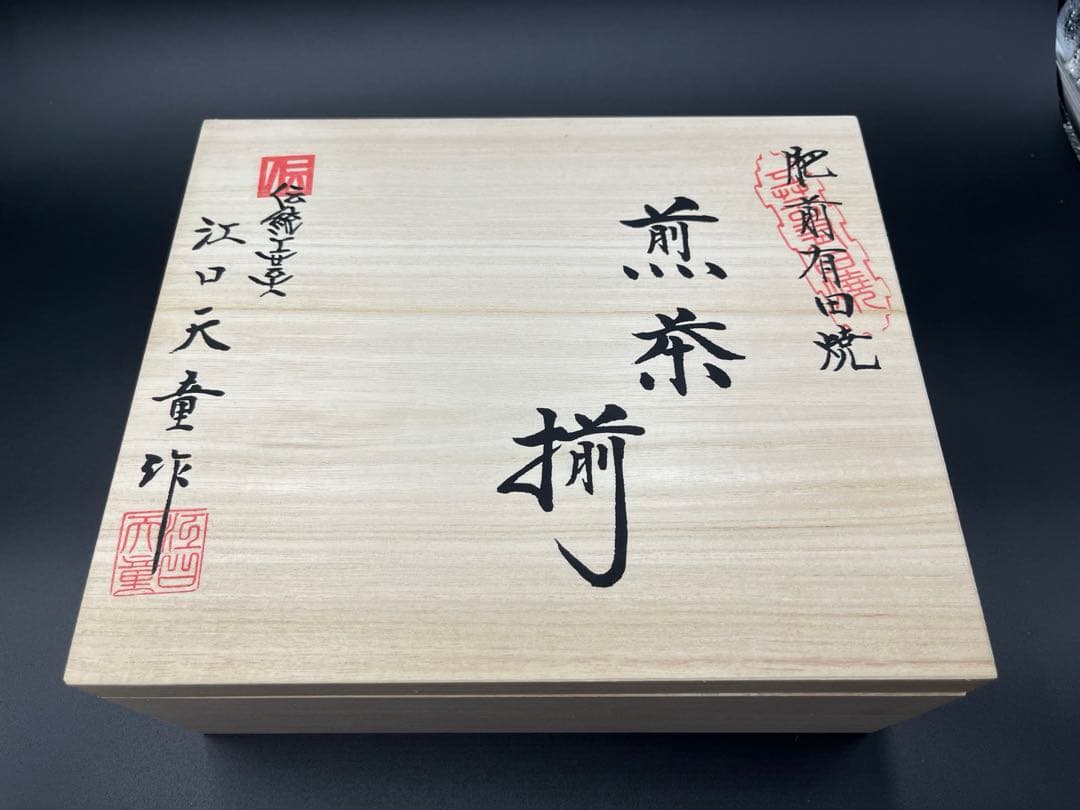 肥前有田焼
煎茶揃
伝統工芸士
江口天童作
江口天童